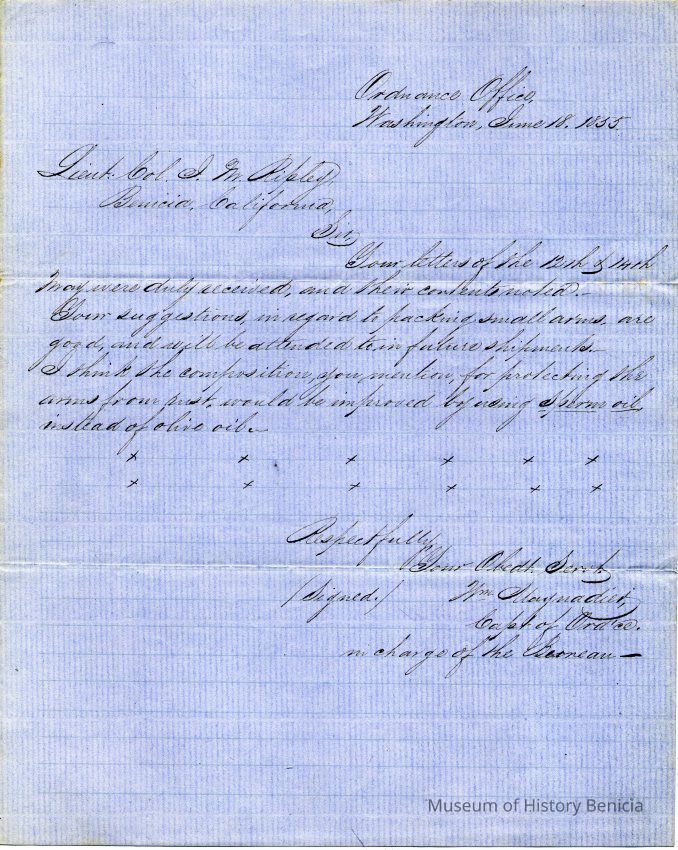 Ordnance Office,
Washington, June 18. 1855.
Lieut. Col. J. W. Ripley,
Benicia, California,
Sir,
Your letters of the 12th & 14th
May, were duly received, and their contents noted.
Your suggestions, in regard to packing small arms, are
good, and will be attended to, in future shipments.
I think the composition, you mention, for protecting the
arms from rust, would be improved by using sperm oil,
instead of olive oil.
x x x x x x
x x x x x x
Respectfully,
Your Obedt. Servt.
(Signed.) Wm Maynadier,
Capt of Ordce.
in charge of the Bureau
Museum of History Benicia